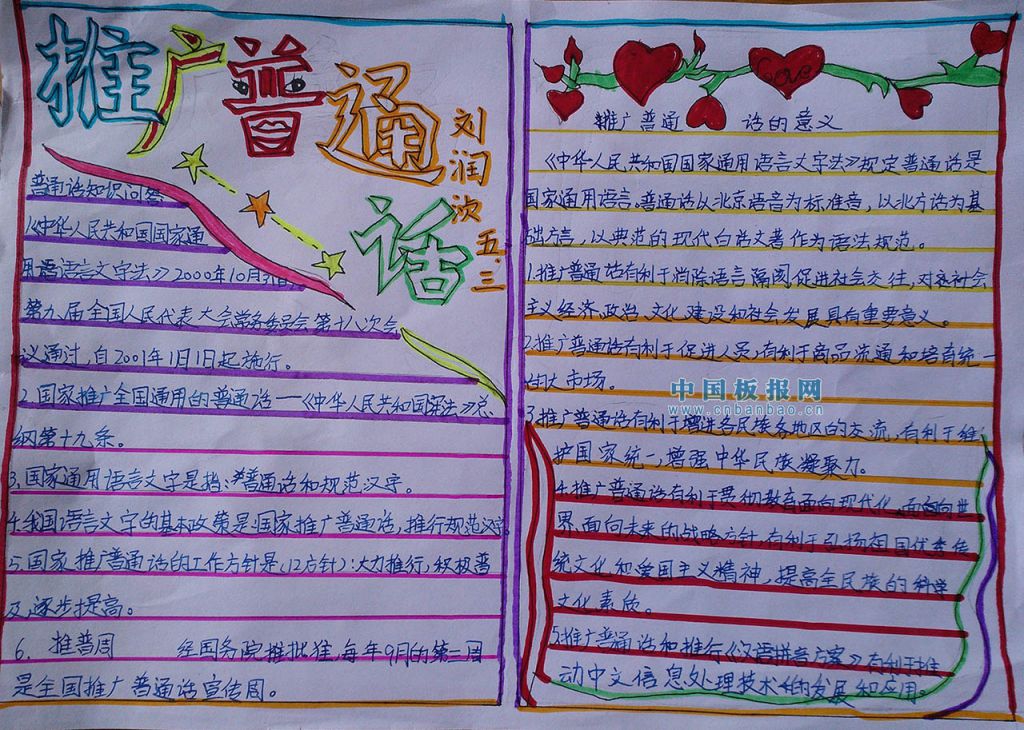 推广普通话
刘润波
五.三
普通话知识问答
《中华人民共和国国家通
用语语言文字法》2000年10月31日
第九届全国人民代表大会常务委员会第十八次会
议通过,自2001年1月1日起施行。
2.国家推广全国通用的普通话——《中华人民共和国宪法》总
纲第十九条。
3.国家通用语言文字是指:普通话和规范汉字。
4.我国语言文字的基本政策是:国家推广普通话,推行规范汉字
5.国家推广普通话的工作方针是(12方针):大力推行,积极普
及,逐步提高。
6.推普周 经国务院批准,每年9月的第三周
是全国推广普通话宣传周。
推广普通话的意义
《中华人民共和国国家通用语言文字法》规定普通话是
国家通用语言.普通话以北京语音为标准音,以北方话为基
础方言,以典范的现代白话文著作为语法规范。
1.推广普通话有利于消除语言隔阂,促进社会交往,对社会
主义经济、政治、文化建设和社会发展具有重要意义。
2.推广普通话有利于促进人员,有利于商品流通和培育统一
的大市场。
中国板报网
www.cnbanbao.cn
3.推广普通话有利于增进各民族各地区的交流,有利于维
护国家统一,增强中华民族凝聚力。
4.推广普通话有利于贯彻教育面向现代化、面向世
界、面向未来的战略方针,有利于弘扬祖国优秀传
统文化和爱国主义精神,提高全民族的科学
文化素质。
5.推广普通话和推行《汉语拼音方案》有利于推
动中文信息处理技术的发展和应用。
Love